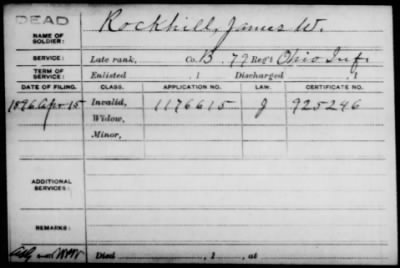 DEAD
NAME OF SOLDIER: Rockhill, James W.
SERVICE: Late rank, Co. B. 79 Reg't Ohio Inf.
TERM OF SERVICE: Enlisted , 1 Discharged , 1
DATE OF FILING. CLASS. APPLICATION NO. LAW. CERTIFICATE NO.
1896 Apr 15 Invalid, 1176615 J 925246
Widow,
Minor,
ADDITIONAL SERVICES:
REMARKS:
Died , 1 , at